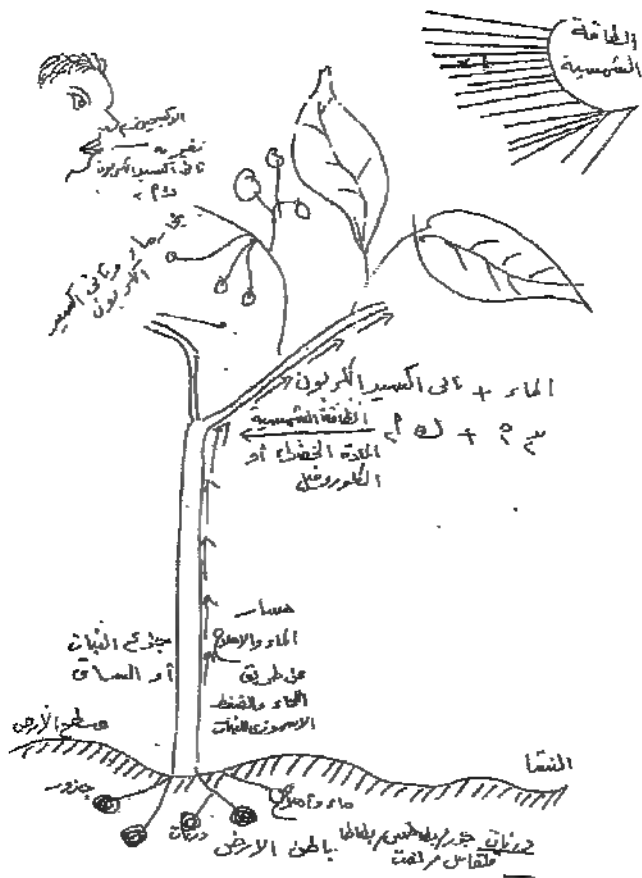 الطاقة
الشمسية
الاكسجين
ثانى اكسيد الكربون
ك أ٢
بخار ماء وثانى اكسيد
الكربون
الماء + ثانى اكسيد الكربون
الطاقة الشمسية
المادة الخضراء أو
الكلوروفيل
مسار
الماء والاملاح
عن طريق
اللحاء والضغط
الاسموزى للنبات
جذع النبات
أو الساق
سطح الأرض
جذور
درنات
ماء وأملاح
باطن الارض
درنات جذور/بطاطس/بطاطا